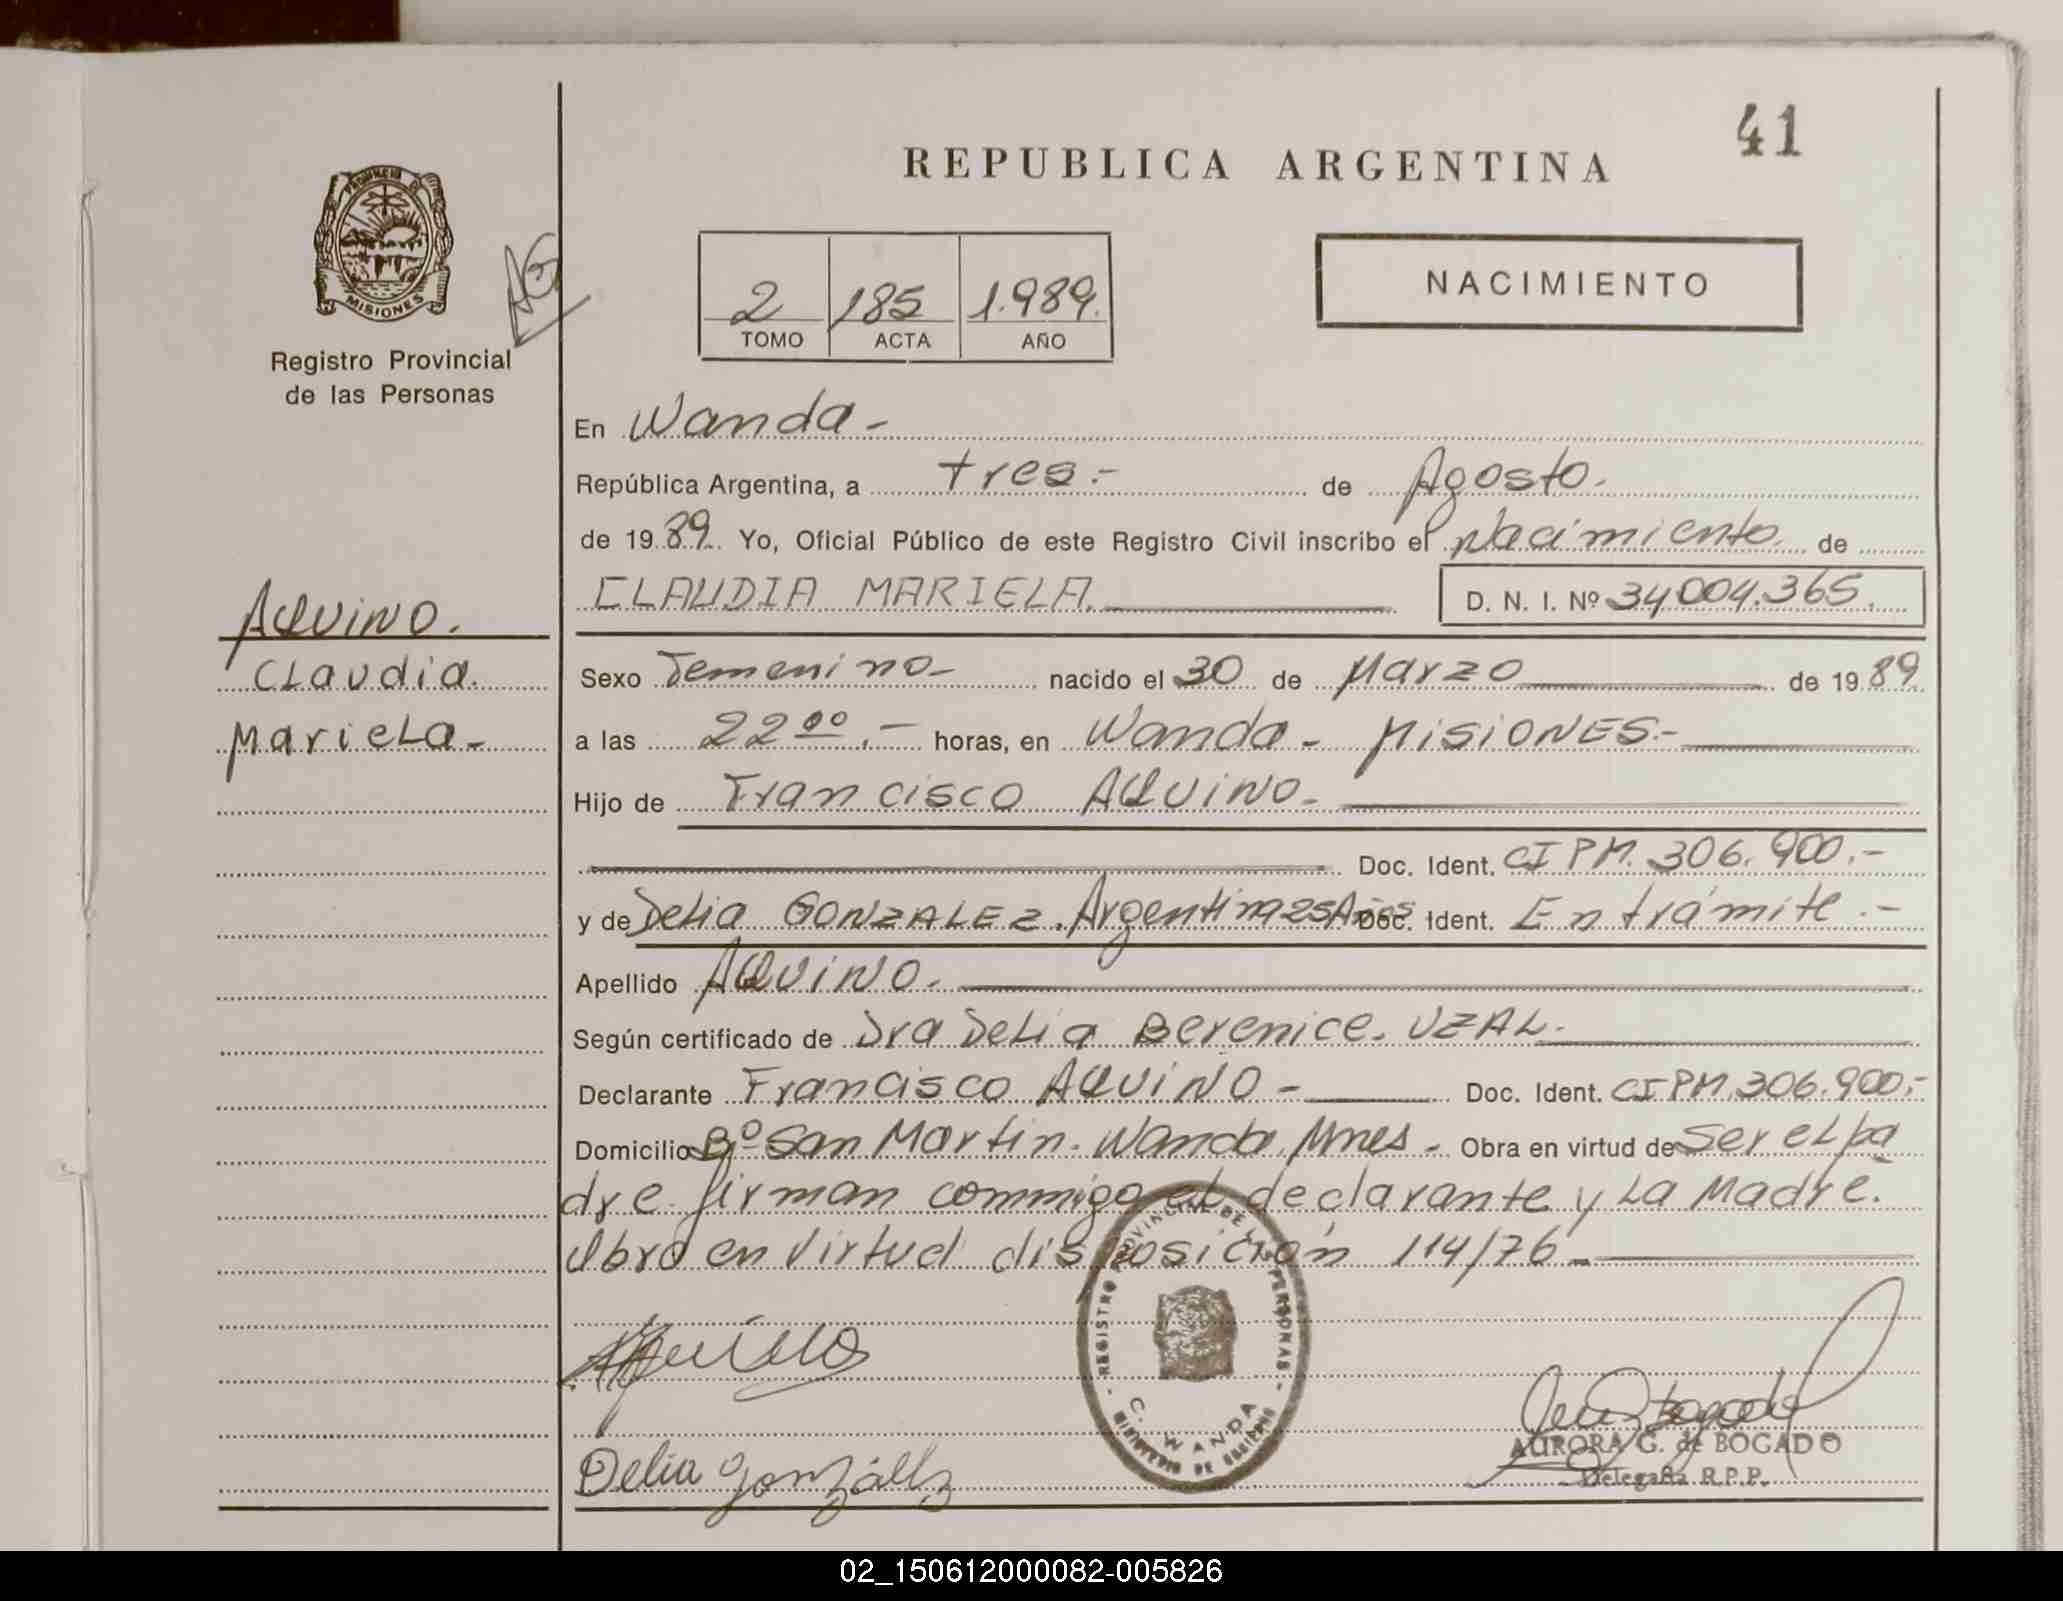 41
REPUBLICA ARGENTINA
PROVINCIA DE
MISIONES
Registro Provincial
de las Personas
AG
2 185 1.989.
TOMO ACTA AÑO
NACIMIENTO
En Wanda-
República Argentina, a tres.- de Agosto.
de 1989. Yo, Oficial Público de este Registro Civil inscribo el Nacimiento de
CLAUDIA MARIELA. D. N. I. Nº 34004.365.
AQUINO.
CLaudia.
MarieLa-
Sexo Femenino- nacido el 30 de Marzo de 1989
a las 22⁰⁰.- horas, en Wanda- MISIONES.-
Hijo de Francisco AQUINO-
Doc. Ident. CI PM. 306.900.-
y de Delia GONZALEZ. Argentina 25 Años Doc. Ident. En trámite.-
Apellido AQUINO.
Según certificado de Dra Delia Berenice. UZAL.
Declarante Francisco AQUINO- Doc. Ident. CI PM.306.900.-
Domicilio Bº San Martin. Wanda, Mnes- Obra en virtud de ser eL pa
dre firman commigo eL declarante y La Madre.
Obra en Virtud disposición 114/76-
REGISTRO PROVINCIAL DE LAS PERSONAS
C. WANDA
MINISTERIO DE GOBIERNO
Delia González
AURORA G. de BOGADO
Delegada R.P.P.
02_150612000082-005826